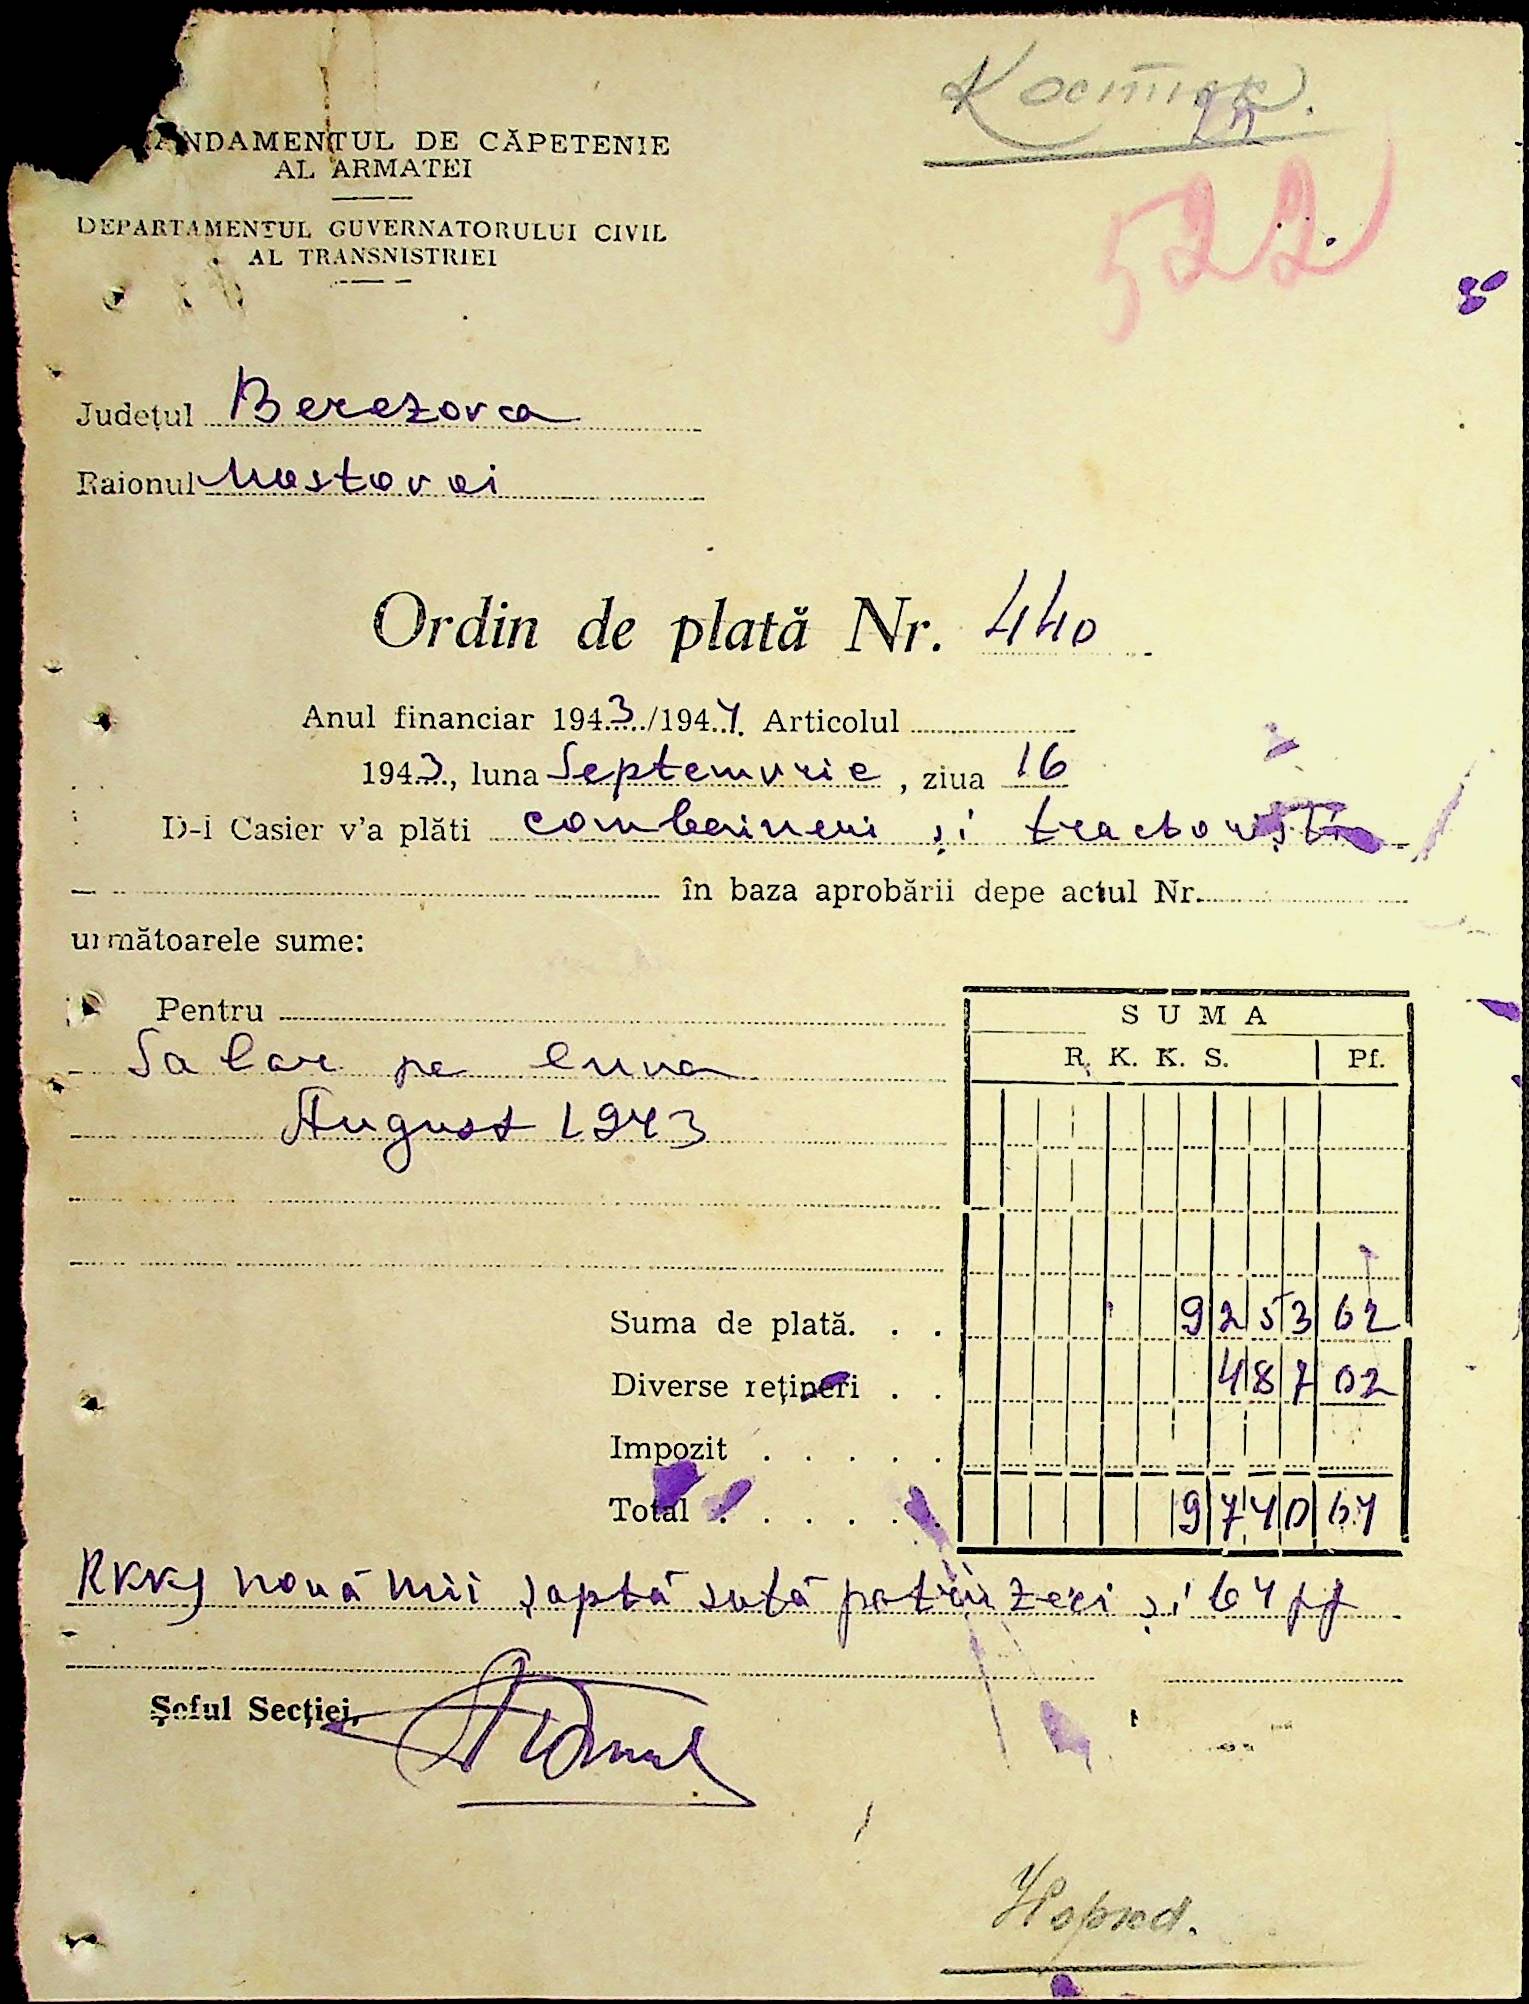 ANDAMENTUL DE CĂPETENIE
AL ARMATEI
DEPARTAMENTUL GUVERNATORULUI CIVIL
AL TRANSNISTRIEI
522
Județul Berezovca
Raionul Mostovoi
Ordin de plată Nr. 440
Anul financiar 1943/1944. Articolul
1943, luna Septemvrie, ziua 16
D-l Casier v'a plăti combaineri și tractoriști
în baza aprobării depe actul Nr.
următoarele sume:
Pentru
Salar pe luna
August 1943
SUMA
R. K. K. S. Pf.
Suma de plată. . . 9253 62
Diverse rețineri . . 487 02
Impozit . . . . .
Total . . . . . . 9740 64
RKKS nouă mii șaptă sută patru zeci și 64 pf
Șeful Secției,